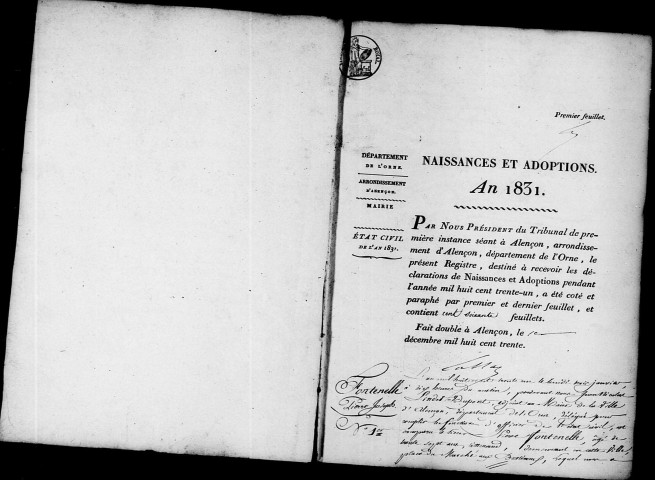 Premier feuillet.
DÉPARTEMENT
DE L'ORNE.
ARRONDISSEMENT
D'ALENÇON.
MAIRIE
ÉTAT CIVIL
DE L'AN 1831.
NAISSANCES ET ADOPTIONS.
An 1831.
PAR NOUS PRÉSIDENT du Tribunal de pre-
mière instance séant à Alençon, arrondisse-
ment d'Alençon, département de l'Orne, le
présent Registre, destiné à recevoir les dé-
clarations de Naissances et Adoptions pendant
l'année mil huit cent trente-un, a été coté et
paraphé par premier et dernier feuillet, et
contient cent soixante feuillets.
Fait double à Alençon, le
décembre mil huit cent trente.
Fontenelle
Pierre
N° 1er
L'an mil huit cent trente un le lundi trois janvier
à dix heures du matin, pardevant nous
Dupont, adjoint au Maire de la Ville
d'Alençon, département de l'Orne, délégué pour
remplir les fonctions d'officier de l'état civil, est
comparu le sieur Pierre Fontenelle, âgé de
trente sept ans, demeurant en cette Ville,
place du Marché aux Bestiaux, lequel nous a